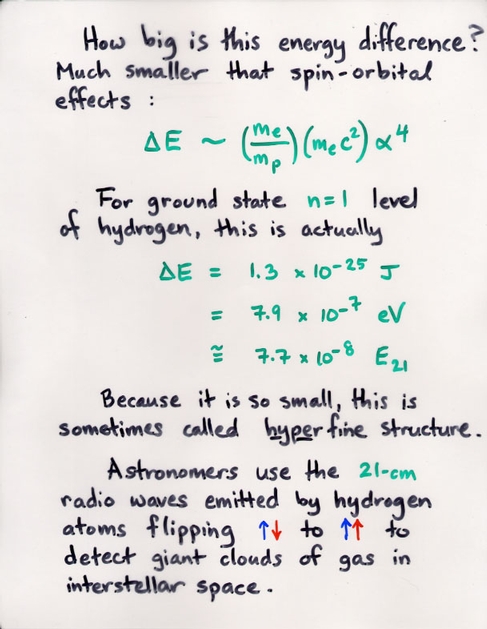 How big is this energy difference?
Much smaller that spin-orbital
effects :
ΔE ~ (me/mp)(mec²)α⁴
For ground state n=1 level
of hydrogen, this is actually
ΔE = 1.3 × 10⁻²⁵ J
= 7.9 × 10⁻⁷ eV
≅ 7.7 × 10⁻⁸ E₂₁
Because it is so small, this is
sometimes called hyperfine structure.
Astronomers use the 21-cm
radio waves emitted by hydrogen
atoms flipping ↑↓ to ↑↑ to
detect giant clouds of gas in
interstellar space.